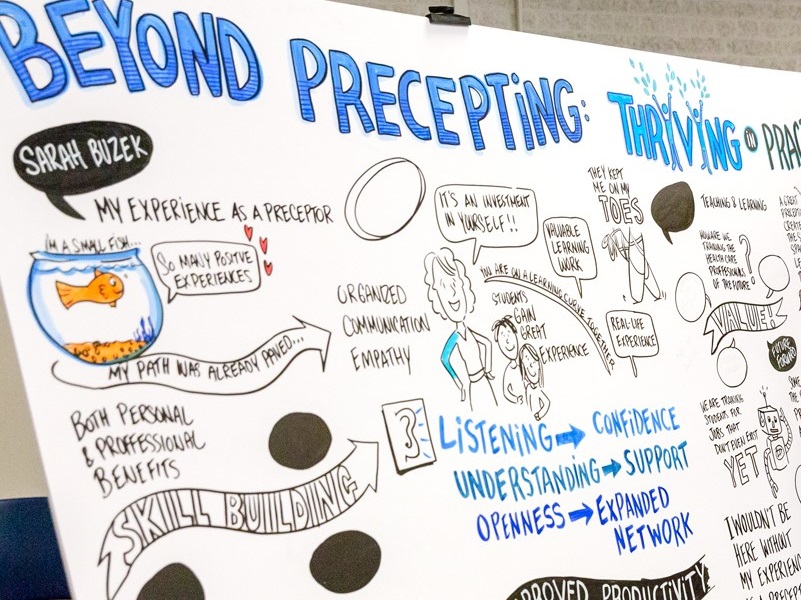 BEYOND PRECEPTING: THRIVING IN
SARAH BUZEK
MY EXPERIENCE AS A PRECEPTOR
I'M A SMALL FISH...
SO MANY POSITIVE
EXPERIENCES
MY PATH WAS ALREADY PAVED...
ORGANIZED
COMMUNICATION
EMPATHY
BOTH PERSONAL
& PROFFESSIONAL
BENEFITS
SKILL BUILDING
IT'S AN INVESTMENT
IN YOURSELF!!
VALUABLE
LEARNING
WORK
YOU ARE ON A LEARNING CURVE TOGETHER
STUDENTS
GAIN
GREAT
EXPERIENCE
REAL-LIFE
EXPERIENCE
THEY KEPT
ME ON MY
TOES
3
LISTENING → CONFIDENCE
UNDERSTANDING → SUPPORT
OPENNESS → EXPANDED
NETWORK
PRODUCTIVITY
TEACHING & LEARNING
HOW ARE WE
TRAINING THE
HEALTH CARE
PROFESSIONALS
OF THE FUTURE?
VALUE
FUTURE
WE ARE TRAINING
STUDENTS FOR
JOBS THAT
DON'T EVEN EXIST
YET
I WOULDN'T BE
HERE WITHOUT
MY
A GREAT